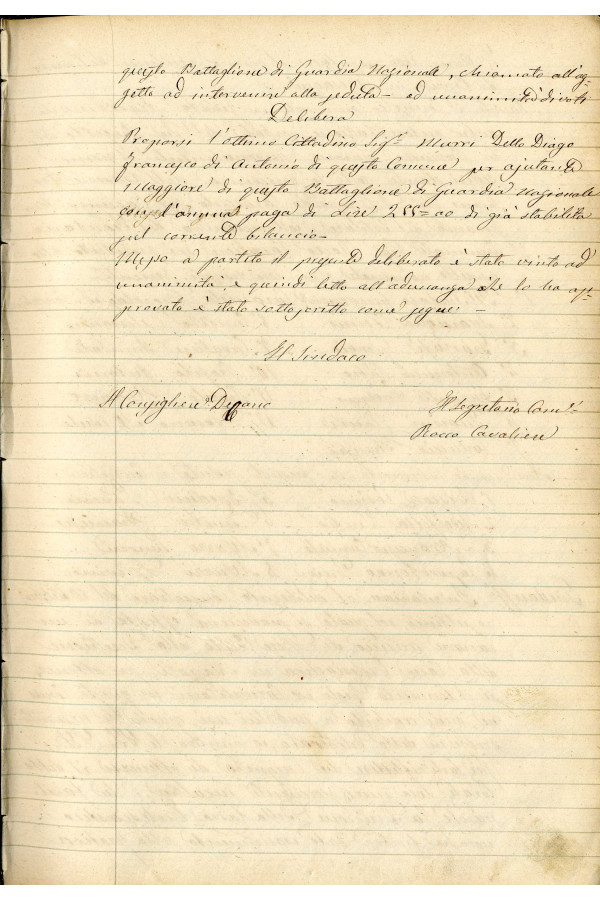 questo Battaglione di Guardia Nazionale, chiamato all'og-
getto ad intervenire alla seduta - ad unanimità di voti
Delibera
Proporsi l'ottimo Cittadino Sigr. Murri Dello Diago
Francesco di Antonio di questo Comune per ajutante
Maggiore di questo Battaglione di Guardia Nazionale
coll'annua paga di Lire 255=00 di già stabilita
sul corrente bilancio -
Messo a partito il presente deliberato è stato vinto ad
unanimità, e quindi letto all'adunanza che lo ha ap-
provato è stato sottoscritto come segue -
Il Sindaco
Il Consigliere Decano
Il Segretario Comle
Rocco Cavaliere